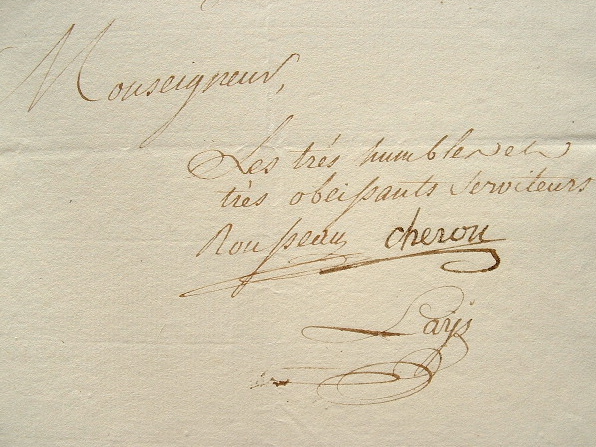 Monseigneur,
Les très humbles et
très obeissants Serviteurs
Rousseau cheron
Laÿs